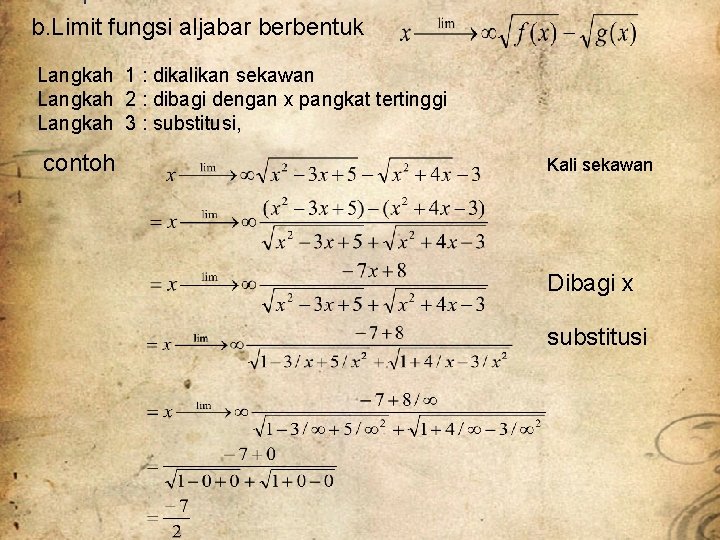 b.Limit fungsi aljabar berbentuk x \xrightarrow{lim} ∞ √f(x) − √g(x)
Langkah 1 : dikalikan sekawan
Langkah 2 : dibagi dengan x pangkat tertinggi
Langkah 3 : substitusi,
contoh x \xrightarrow{lim} ∞ √(x² −3x+5) − √(x² +4x−3) Kali sekawan
= x \xrightarrow{lim} ∞ ((x² −3x+5)−(x² +4x−3)) / (√(x² −3x+5) + √(x² +4x−3))
= x \xrightarrow{lim} ∞ (−7x+8) / (√(x² −3x+5) + √(x² +4x−3)) Dibagi x
= x \xrightarrow{lim} ∞ (−7+8) / (√(1−3/x+5/x²) + √(1+4/x−3/x²)) substitusi
= x \xrightarrow{lim} ∞ (−7+8/∞) / (√(1−3/∞+5/∞²) + √(1+4/∞−3/∞²))
= (−7+0) / (√(1−0+0) + √(1+0−0))
= −7 / 2